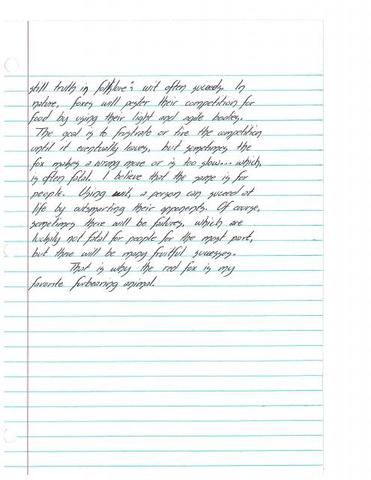 still truth in folklore: wit often succeeds. In
nature, foxes will pester their competition for
food by using their light and agile bodies.
The goal is to frustrate or tire the competition
until it eventually leaves, but sometimes the
fox makes a wrong move or is too slow... which
is often fatal. I believe that the same is for
people. Using wit, a person can succeed at
life by outsmarting their opponents. Of course,
sometimes there will be failures, which are
luckily not fatal for people for the most part,
but there will be many fruitful successes.
That is why the red fox is my
favorite furbearing animal.